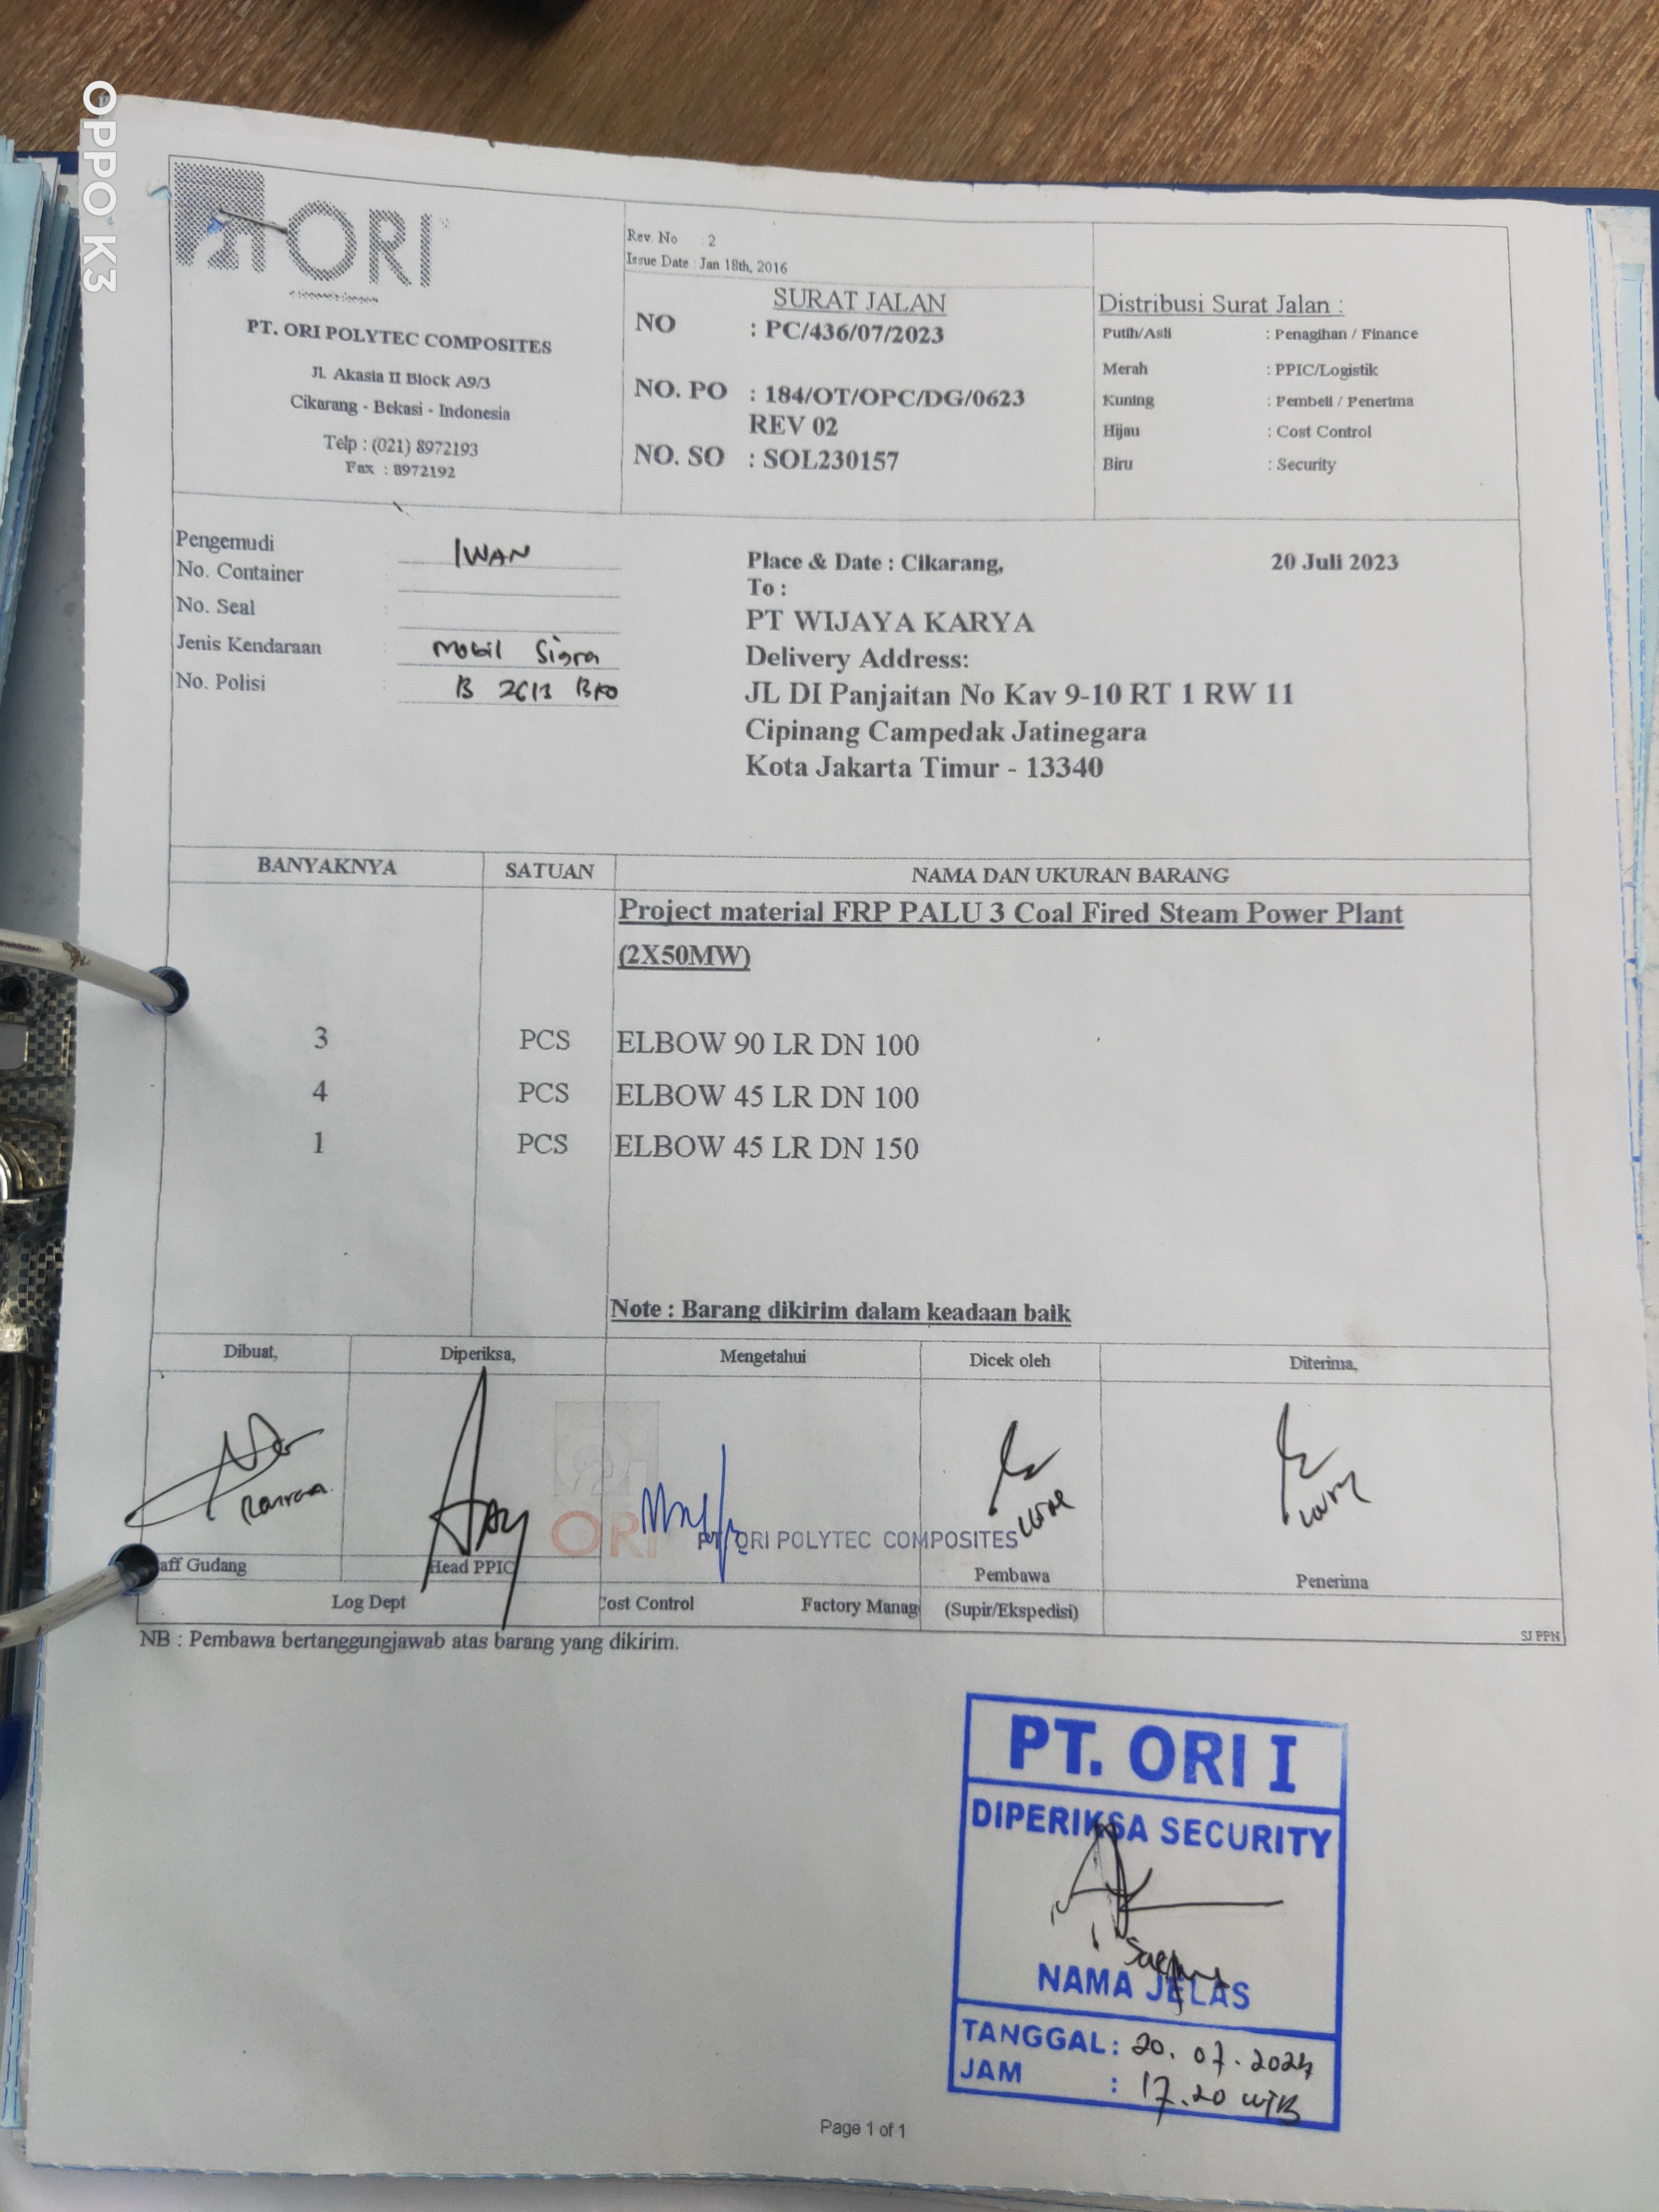 OPPO K3
ORI
PT. ORI POLYTEC COMPOSITES
Jl. Akasia II Block A9/3
Cikarang - Bekasi - Indonesia
Telp : (021) 8972193
Fax : 8972192
Rev. No : 2
Issue Date : Jan 18th, 2016
SURAT JALAN
NO : PC/436/07/2023
NO. PO : 184/OT/OPC/DG/0623
REV 02
NO. SO : SOL230157
Distribusi Surat Jalan :
Putih/Asli : Penagihan / Finance
Merah : PPIC/Logistik
Kuning : Pembeli / Penerima
Hijau : Cost Control
Biru : Security
Pengemudi IWAN
No. Container
No. Seal
Jenis Kendaraan : Mobil Sigra
No. Polisi : B
Place & Date : Cikarang, 20 Juli 2023
To :
PT WIJAYA KARYA
Delivery Address:
JL DI Panjaitan No Kav 9-10 RT 1 RW 11
Cipinang Campedak Jatinegara
Kota Jakarta Timur - 13340
BANYAKNYA SATUAN NAMA DAN UKURAN BARANG
Project material FRP PALU 3 Coal Fired Steam Power Plant
(2X50MW)
3 PCS ELBOW 90 LR DN 100
4 PCS ELBOW 45 LR DN 100
1 PCS ELBOW 45 LR DN 150
Note : Barang dikirim dalam keadaan baik
Dibuat, Diperiksa, Mengetahui Dicek oleh Diterima,
ORI
PT. ORI POLYTEC COMPOSITES
aff Gudang Head PPIC Pembawa Penerima
Log Dept Cost Control Factory Manag (Supir/Ekspedisi)
SJ PPN
NB : Pembawa bertanggungjawab atas barang yang dikirim.
PT. ORI I
DIPERIKSA SECURITY
NAMA JELAS
TANGGAL : 20. 07.
JAM : 17.20 WIB
Page 1 of 1